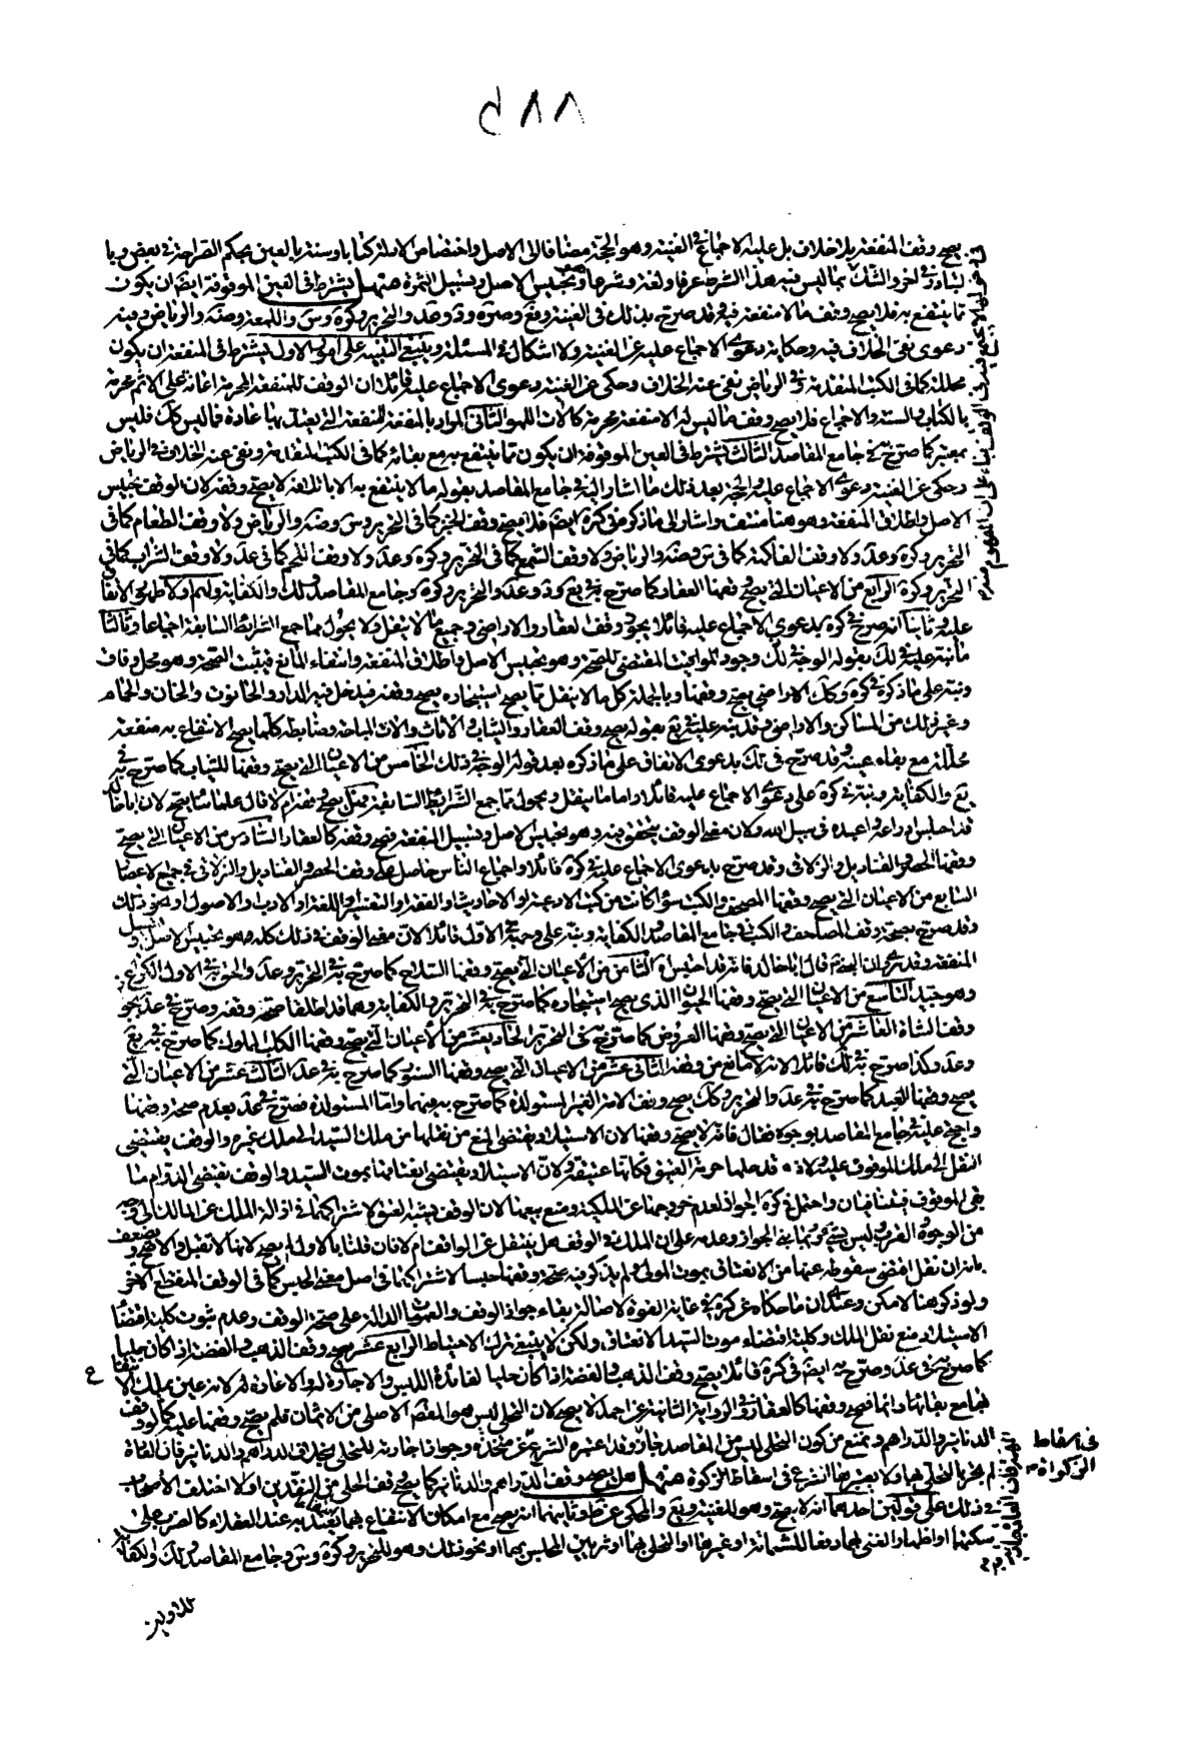 ٥٨٨
يصح وقف المنفعة بلا خلاف بل عليه الاجماع في الغنية وهو الحجة مضافا الى الاصل واختصاص الادلة كتابا وسنة بالعين بحكم الصراحة في بعض
لتبادر في اخر والشك بما ليس فيه هذا الشرط عرفا ولغة وشرعا وتحبيس الاصل وتسبيل الثمرة منها يشترط في العين الموقوفة ايضا ان يكون
مما ينتفع به فلا يصح وقف ما لا منفعة فيه وقد صرح بذلك في الغنية ويع وصره ود وعد والتحرير وكره وس واللمعة وضه والرياض وفيه
دعوى نفى الخلاف فيه وحكاية دعوى الاجماع عليه عن الغنية ولا اشكال في المسئلة وينبغي التنبيه على امور الاول يشترط في المنفعة ان يكون
محللة كما في الكتب المتقدمة وفي الرياض نفى عنه الخلاف وحكى عن الغنية دعوى الاجماع عليه قائلا ان الوقف للمنفعة المحرمة اعانة على الاثم محرمة
بالكتاب والسنة والاجماع فلا يصح وقف ما ليس له الا منفعة محرمة كالات اللهو الثاني المراد بالمنفعة المنفعة التي يعتد بها عادة فما ليس كك فليس
بمعتبر كما صرح به في جامع المقاصد الثالث يشترط في العين الموقوفة ان يكون مما ينتفع به مع بقائه كما في الكتب المتقدمة ونفى عنه الخلاف في الرياض
وحكى عن الغنية دعوى الاجماع عليه والحجة بعد ذلك ما اشار اليه في جامع المقاصد بقوله ما لا ينتفع به الا باتلافه لا يصح وقفه لان الوقف تحبيس
الاصل واطلاق المنفعة وهو هنا منتف واشار الى ما ذكر في كره ايضا فلا يصح وقف الخبز كما في التحرير وس وضه والرياض ولا وقف الطعام كما في
التحرير وكره وعد ولا وقف الفاكهة كما في س وضه والرياض ولا وقف الشمع كما في التحرير وكره وعد ولا وقف الثلج كما في عد ولا وقف الشراب كما في
التحرير وكره الرابع من الاعيان التي يصح وقفها العقار كما صرح به في يع ود وعد والتحرير وكره وجامع المقاصد ولك والكفاية ولهم اولا ظهور الاتفاق
عليه وثانيا انه صرح في كره بدعوى الاجماع عليه قائلا يجوز وقف العقار والاراضي وجميع ما لا ينقل ولا يحول مما جمع الشرائط السابقة اجماعا وثالثا
ما نبه عليه في لك بقوله الوجه في ذلك وجود الموجب المقتضي للصحة وهو تحبيس الاصل واطلاق المنفعة وانتفاء المانع فيثبت الصحة وهو محل وفاق
ونبه على ما ذكره في كره وكك الاراضي يصح وقفها وبالجملة كل ما لا ينقل مما يصح استيجاره يصح وقفه فيدخل فيه الدار والحانوت والخان والحمام
وغير ذلك من المساكن والاراضي وقد نبه عليه في يع بقوله يصح وقف العقار والثياب والاثاث والالات المباحة وضابطه كلما يصح الانتفاع به منفعة
محللة مع بقاء عينه وقد صرح في لك بدعوى الاتفاق على ما ذكره بعد قوله الوجه في ذلك الخامس من الاعيان التي يصح وقفها الثياب كما صرح به في
يع والكفاية ونبه في كره على دعوى الاجماع عليه قائلا واما ما ينقل ويحول مما جمع الشرائط السابقة فهل يصح وقفه ام لا قال علمائنا يصح لان اباخالد
قد احبس ادراعه واعبده في سبيل الله وكان معنى الوقف يتحقق فيه وهو تحبيس الاصل وتسبيل المنفعة فصح وقفه كالعقار السادس من الاعيان التي يصح
وقفها الحصر والقناديل والزلالى وقد صرح بدعوى الاجماع عليه في كره قائلا واجماع الناس حاصل على وقف الحصر والقناديل والزلالى في جميع الاعصار
السابع من الاعيان التي يصح وقفها المصحف والكتب سواء كانت من كتب الادعية او الاحاديث او الفقه او التفسير او اللغة او الادب والاصول او نحو ذلك
وقد صرح بصحة وقف المصاحف والكتب في جامع المقاصد والكفاية ونبه على وجهه في الاول قائلا لان معنى الوقف في ذلك كله وهو تحبيس الاصل وتسبيل
المنفعة وقد قال اباخالد فانه قد احتبس الثامن من الاعيان التي يصح وقفها السلاح كما صرح به في التحرير وعد
وهو جيد التاسع من الاعيان التي يصح وقفها الحيوان الذي يصح استيجاره كما صرح به في التحرير والكفاية وهما قد اطلقا صحة وقفه وصرح في عد بجواز
وقف الشاة العاشر من الاعيان التي يصح وقفها العروض كما صرح به في التحرير الحاديعشر من الاعيان التي يصح وقفها الكلب المملوك كما صرح به في يع
وعد وكذا صرح به في لك قائلا لانه لا مانع من وقفه الثاني عشر من الاعيان التي يصح وقفها السنور كما صرح به في عد الثالث عشر من الاعيان التي
يصح وقفها العبد كما صرح به في عد والتحرير وكك يصح وقف الامة الغير المستولدة كما صرح به فيهما واما المستولدة فصرح في عد بعدم صحة وقفها
واحتج عليه في جامع المقاصد بوجوه فقال فانه لا يصح وقفها لان الاستيلاد يقتضى المنع من نقلها من ملك السيد الى ملك غيره والوقف يقتضى
النقل الى ملك الموقوف عليه ولانه قد حلها حرمة العتق فكانها عتيقة ولان الاستيلاد يقتضى انعتاقها بموت السيد والوقف يقتضى الدوام ما
بقى الموقوف فيتنافيان واحتمل في كره الجواز لعدم خروجها عن الملكية ومنع بيعها لان الوقف يشبه العتق لاشتراكهما في ازالة الملك عن المالك الى وجه
من الوجوه القرب وليس بشيء وربما بنى الجواز وعدمه على ان الملك في الوقف هل ينتقل عن الواقف ام لا فان قلنا بالاول لم يصح لانها لا تقبل والا صح ويضعف
بانه ان نقل اقتضى سقوطه عنها من الانعتاق بموت المولى ولم يذكر فيه صحة وقفها حبسا لاشتراكهما في اصل معنى الحبس كما في الوقف المنقطع الاخر
ولو ذكر هنا لامكن وعندى ان ما حكاه عن كره في غاية القوة لاصالة بقاء جواز الوقف والعمومات الدالة على صحة الوقف وعدم ثبوت كلية اقتضاء
الاستيلاد منع نقل الملك وكلية اقتضاء موت السيد الانعتاق ولكن لا ينبغي ترك الاحتياط الرابع عشر يصح وقف الذهب والفضة اذا كان حليا
كما صرح به في عد وصرح به ايضا في كره قائلا يصح وقف الذهب والفضة اذا كان حليا لفائدة اللبس والاجارة والاعارة لانه عين يملك الانتفاع
بها مع بقائها دائما فصح وقفها كالعقار وفي الرواية الثانية عن احمد لا يصح لان التحلي ليس هو المقصد الاصلي من الاثمان فلم يصح وقفها عليه كما لو وقف
الدنانير والدراهم ونمنع من كون التحلي ليس من المقاصد وقد اعتبره الشرع وجوز اجارته للتحلي بخلاف الدراهم والدنانير فان العادة
لم تجر بالتحلي بها ولا يعتبرها الشرع في اسقاط الزكوة منهل هل يصح وقف الدراهم والدنانير كما يصح وقف الحلي من النقدين او لا اختلف الاصحاب
في ذلك على قولين احدهما انه لا يصح وهو للغنية ويع والمحكي عن ط وثانيهما انه يصح مع امكان الانتفاع بهما نفعا يعتد به عند العقلاء كالضرب على
سكتهما او اظهار الغنى بهما دفعا للشماتة او غيرها او التحلي بهما او تزيين المجلس بهما او نحو ذلك وهو للتحرير وكره وس وجامع المقاصد ولك والكفاية
في اسقاط
الزكوة